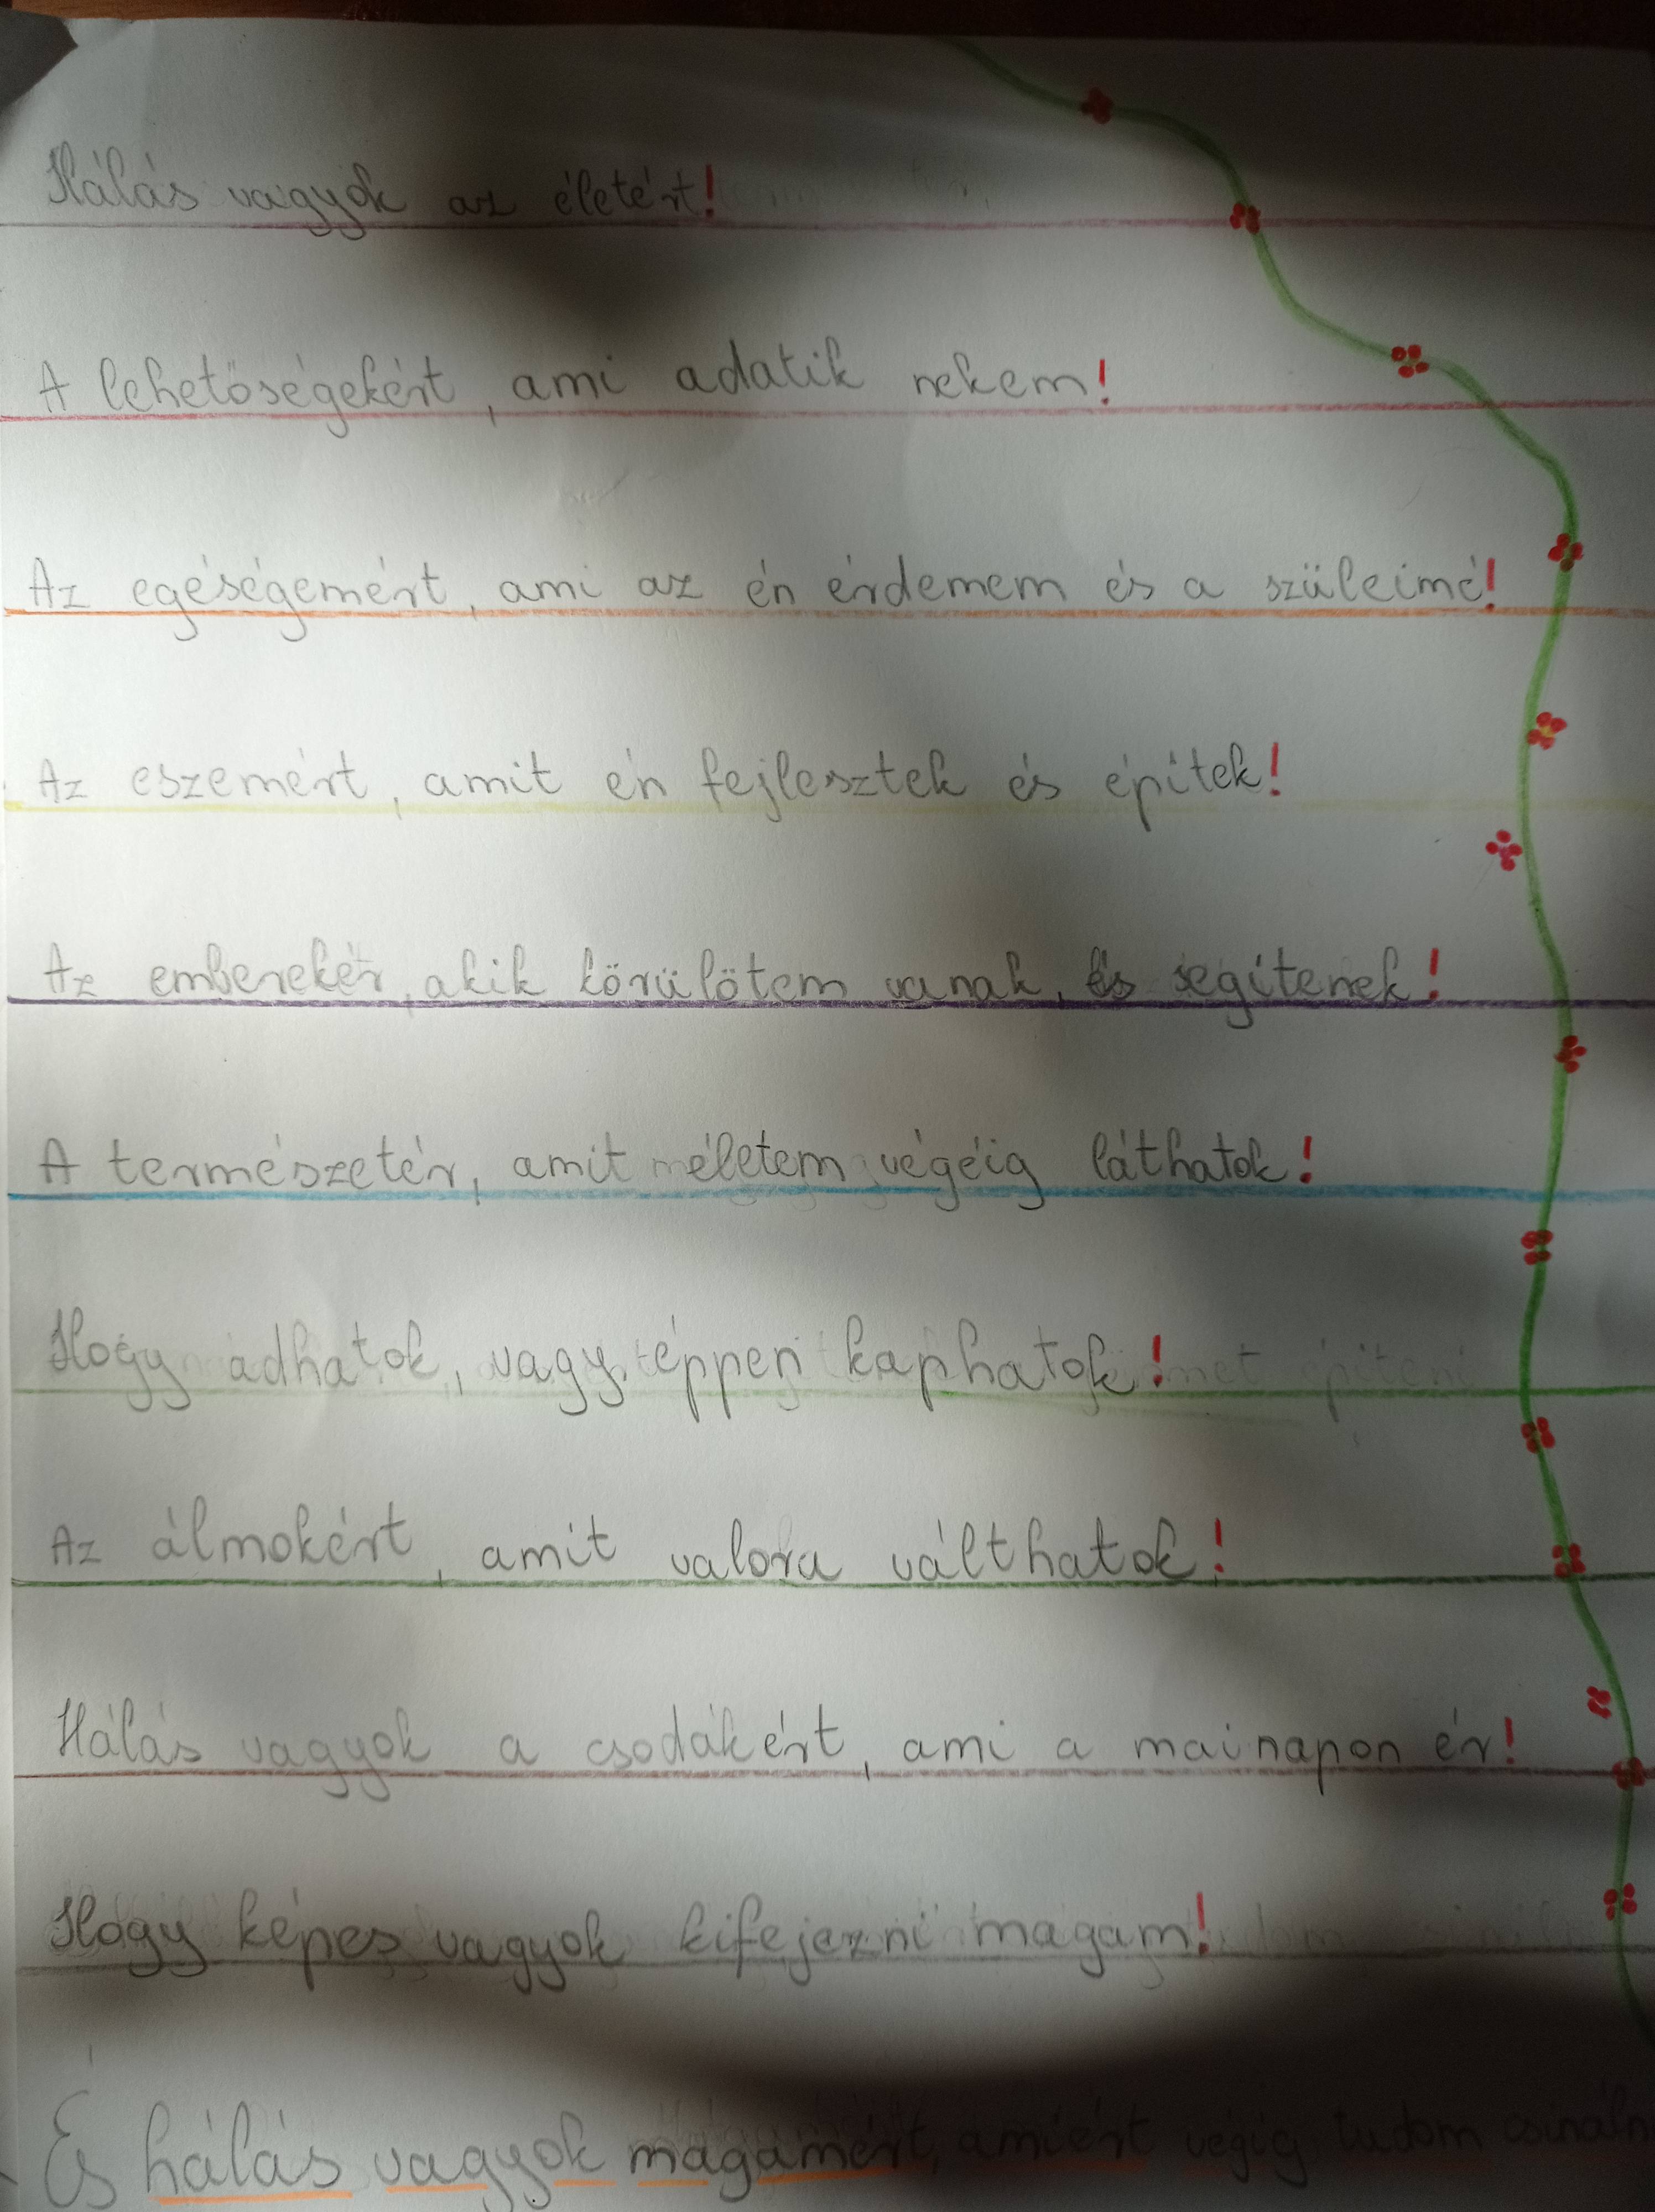 Hálás vagyok az életért!
A lehetőségekért, ami adatik nekem!
Az egéségemért, ami az én érdemem és a szüleimé!
Az eszemért, amit én fejlesztek és építek!
Az emberekér, akik körülötem vanak, és segítenek!
A természetér, amit életem végéig láthatok!
Hogy adhatok, vagy éppen kaphatok!
Az álmokért, amit valora válthatok!
Hálás vagyok a csodákért, ami a mai napon ér!
Hogy képes vagyok kifejezni magam!
És hálás vagyok magamért, amiért végig tudom csináln